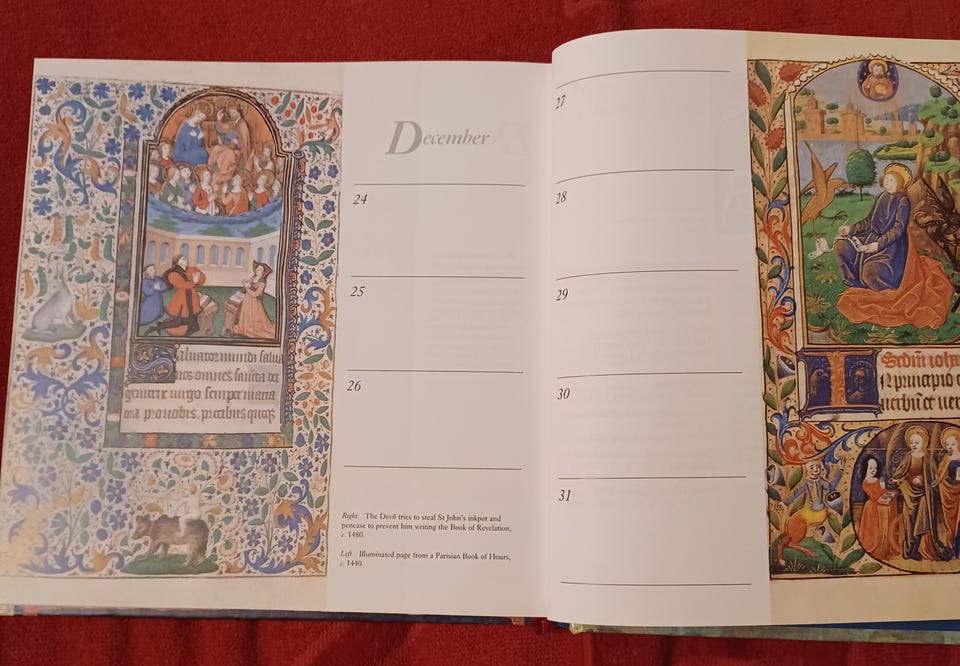 December
24
25
26
Right The Devil tries to steal St John's inkpot and
pencase to prevent him writing the Book of Revelation,
c. 1480.
Left Illuminated page from a Parisian Book of Hours,
c. 1440.
27
28
29
30
31
Saluator mundi salua
nos omnes sancta dei
genitrix uirgo semper maria
ora pro nobis. precibus quoqz
Sedm ioha
In principio e
uerbu et ver